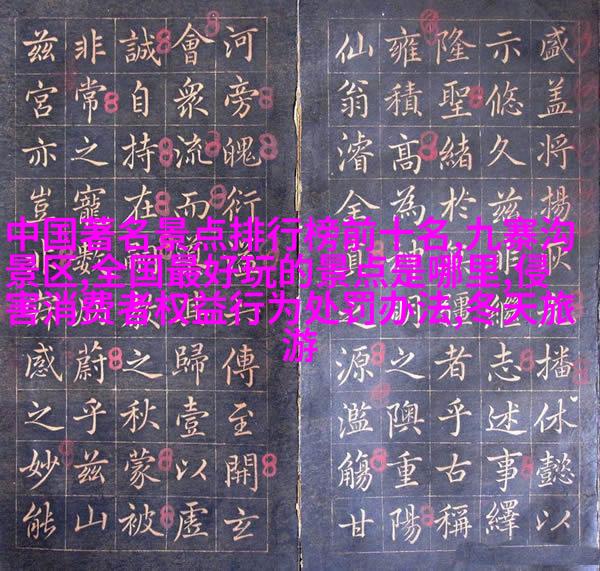 中国著名景点排行榜前十名,九寨沟
景区,全国最好玩的景点是哪里,侵
害消费者权益行为处罚办法,冬天旅
游
盛盖将揚播休懿以
示悠久兹非志述事繹
隆聖緒於者乎古稱
雍積高為神明之隩重陽
仙翁濬金源濫觴甘
河旁魄衍傳至開玄
會眾流而歸壹以虛
誠自持在之秋蒙被
非常之寵數蔚乎兹山
兹宮亦豈感之妙能